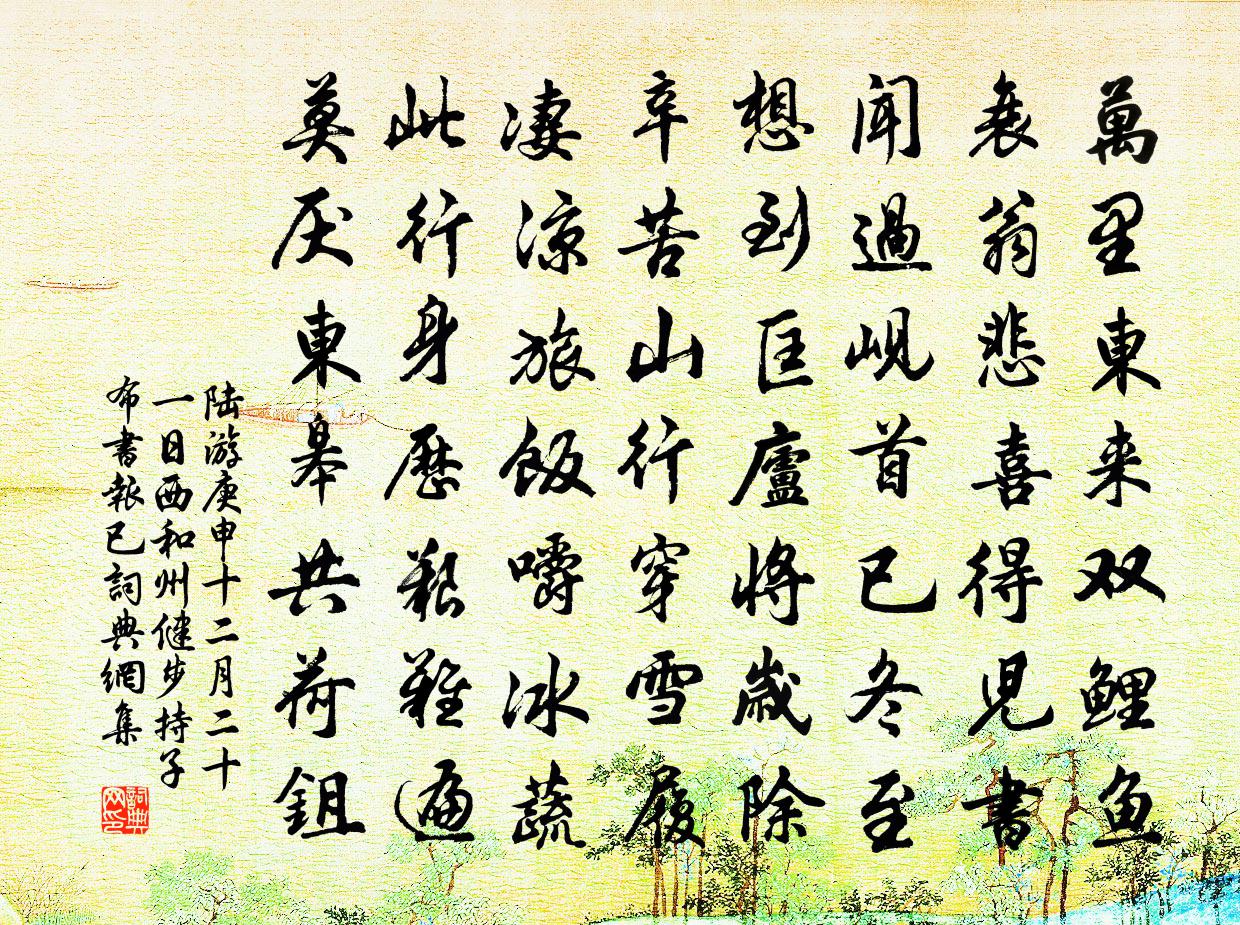 萬里東来双鲤鱼
衰翁悲喜得児書
聞過峴首已冬至
想到匡廬將歲除
辛苦山行穿雪履
凄涼旅飯嚼冰蔬
此行身歷艱難遍
莫厌東皋共荷鉏
陆游庚申十二月二十
一日西和州健步持子
布書報已詞典網集
詞典网印